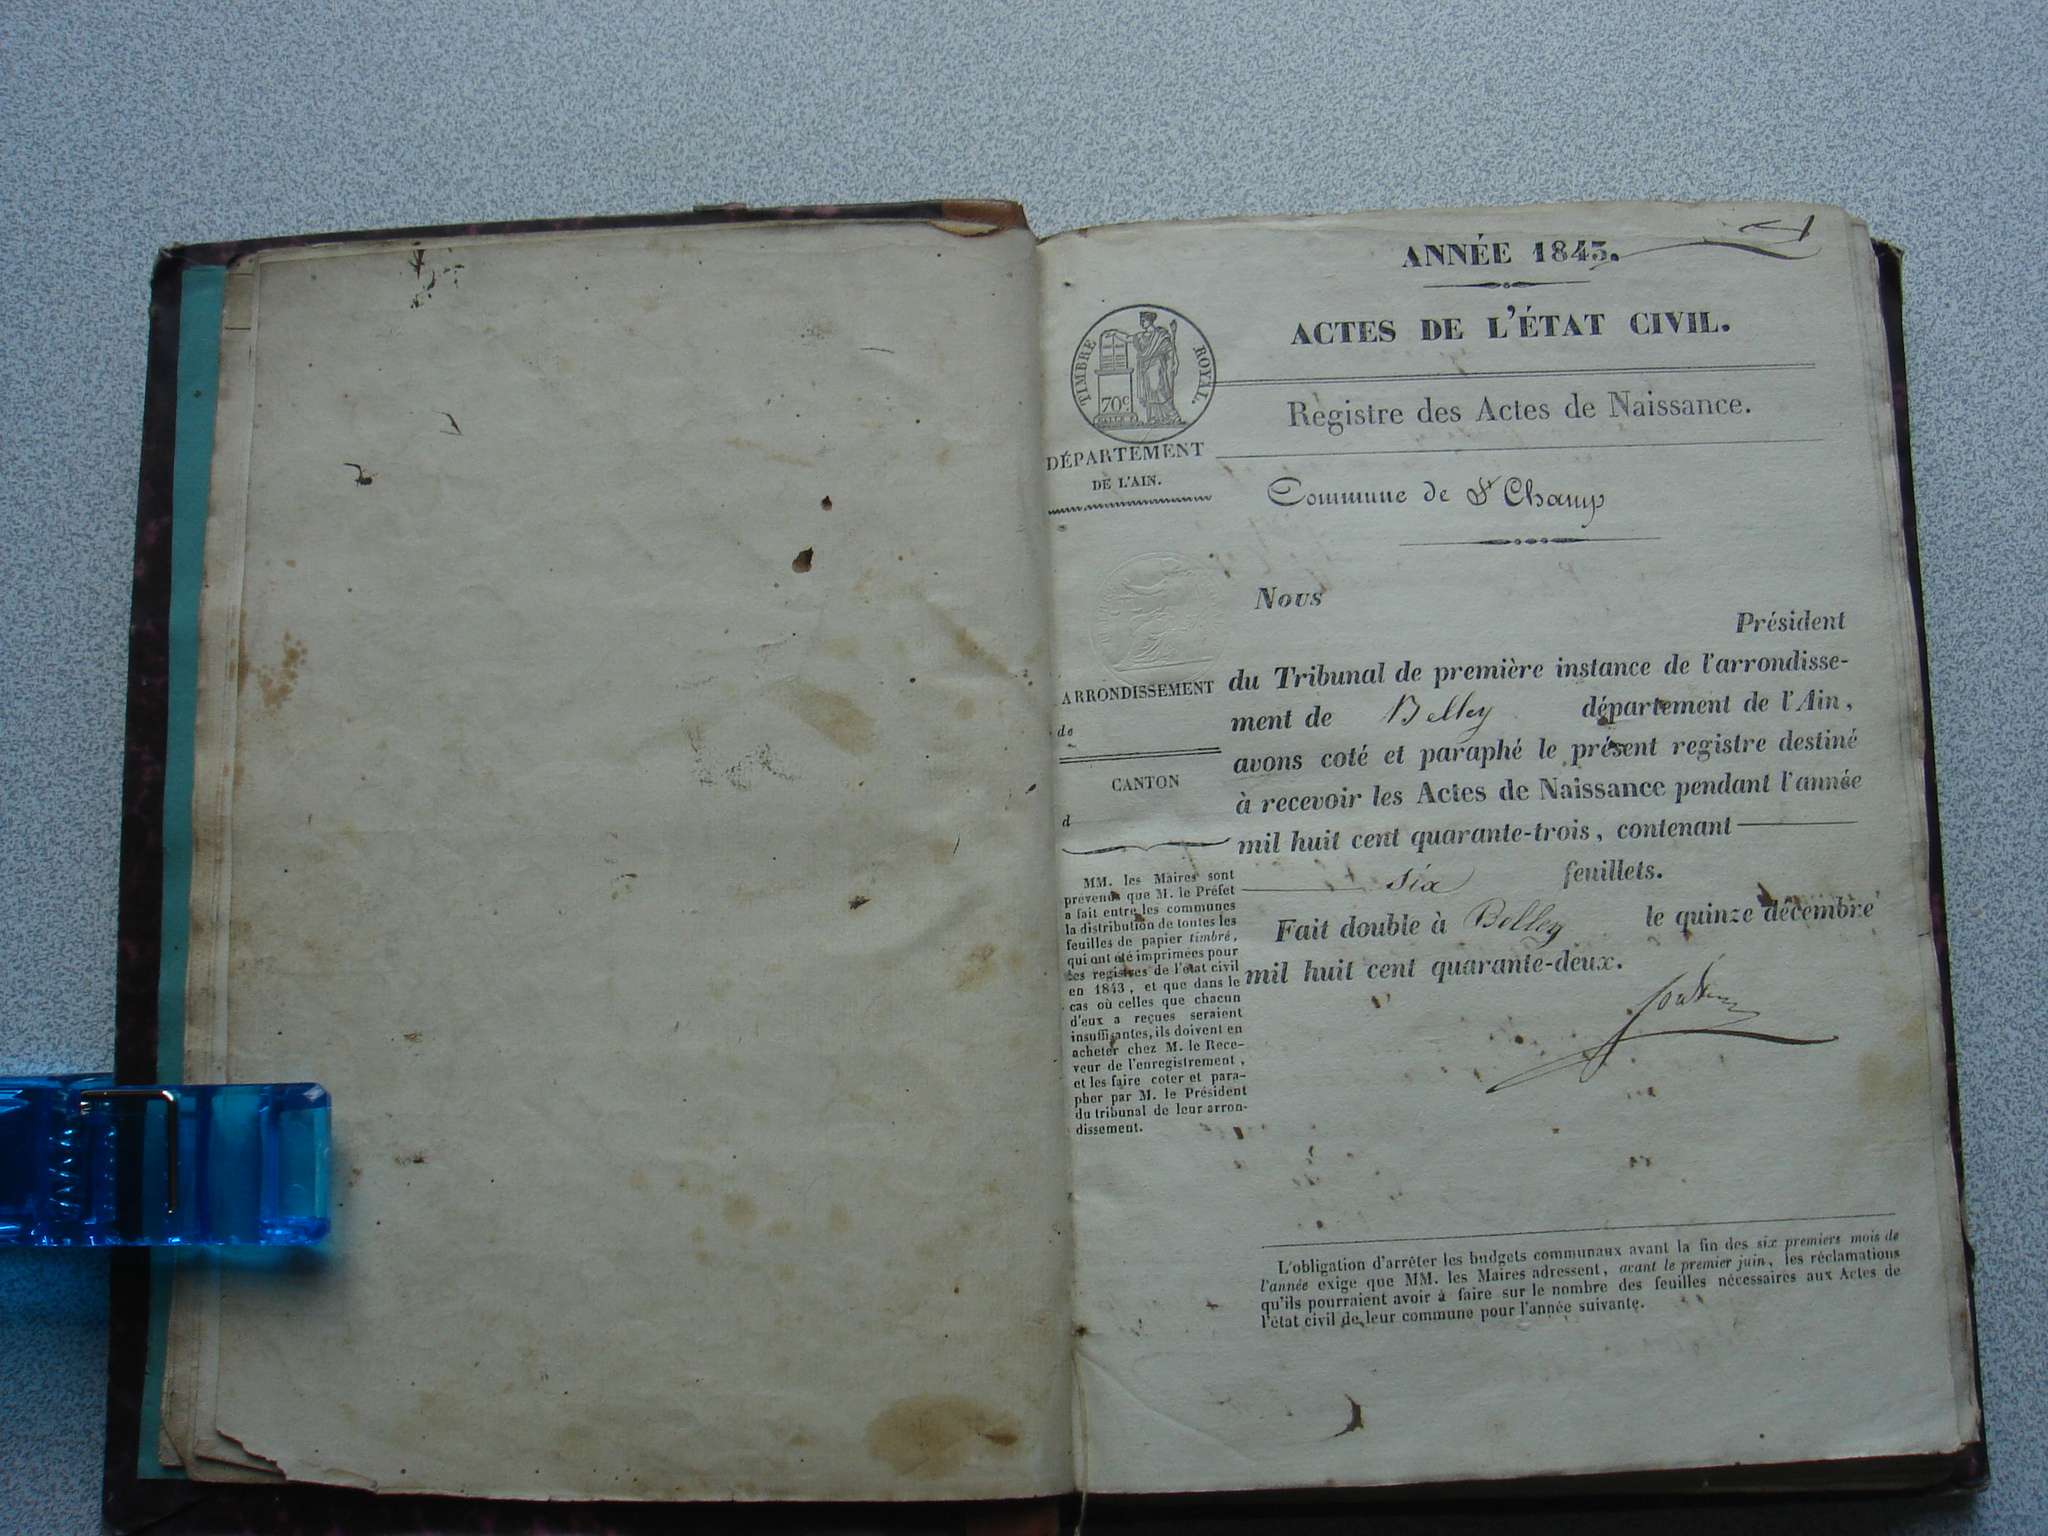 ANNÉE 1843.
ACTES DE L'ÉTAT CIVIL.
TIMBRE ROYAL.
70c
Registre des Actes de Naissance.
DÉPARTEMENT
DE L'AIN.
Commune de St Champ
Nous
Président
du Tribunal de première instance de l'arrondisse-
ment de Belley département de l'Ain,
avons coté et paraphé le présent registre destiné
à recevoir les Actes de Naissance pendant l'année
mil huit cent quarante-trois, contenant
six feuillets.
Fait double à Belley le quinze décembre
mil huit cent quarante-deux.
ARRONDISSEMENT
de
CANTON
d
MM. les Maires sont
prévenus que M. le Préfet
a fait entre les communes
la distribution de toutes les
feuilles de papier timbré,
qui ont été imprimées pour
les registres de l'état civil
en 1843, et que dans le
cas où celles que chacun
d'eux a reçues seraient
insuffisantes, ils doivent en
acheter chez M. le Rece-
veur de l'enregistrement,
et les faire coter et para-
pher par M. le Président
du tribunal de leur arron-
dissement.
L'obligation d'arrêter les budgets communaux avant la fin des six premiers mois de
l'année exige que MM. les Maires adressent, avant le premier juin, les réclamations
qu'ils pourraient avoir à faire sur le nombre des feuilles nécessaires aux Actes de
l'état civil de leur commune pour l'année suivante.